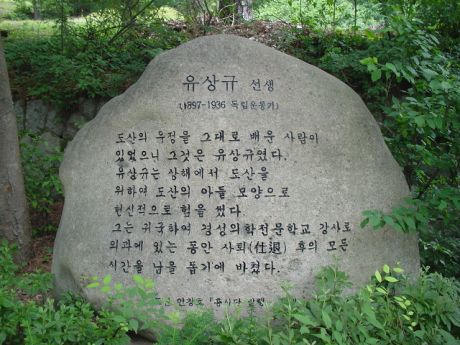 유상규 선생
(1897-1936 독립운동가)
도산의 우정을 그대로 배운 사람이
있었으니 그것은 유상규였다.
유상규는 상해에서 도산을
위하여 도산의 아들 모양으로
헌신적으로 힘을 썼다
그는 귀국하여 경성의학전문학교 강사로
외과에 있는 동안 사퇴(仕退) 후의 모든
시간을 남을 돕기에 바쳤다.
안창호